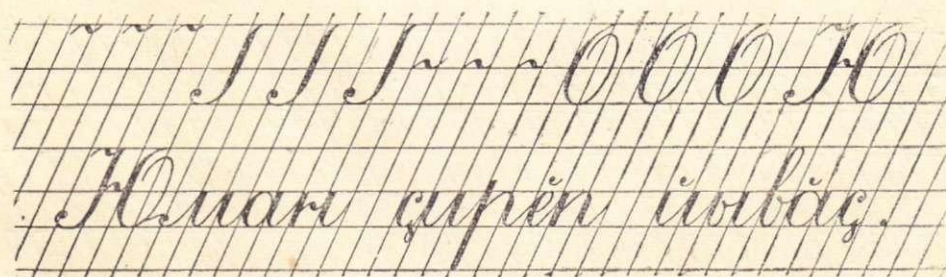 О О О Ю
Юман ҫирӗп йывӑҫ.